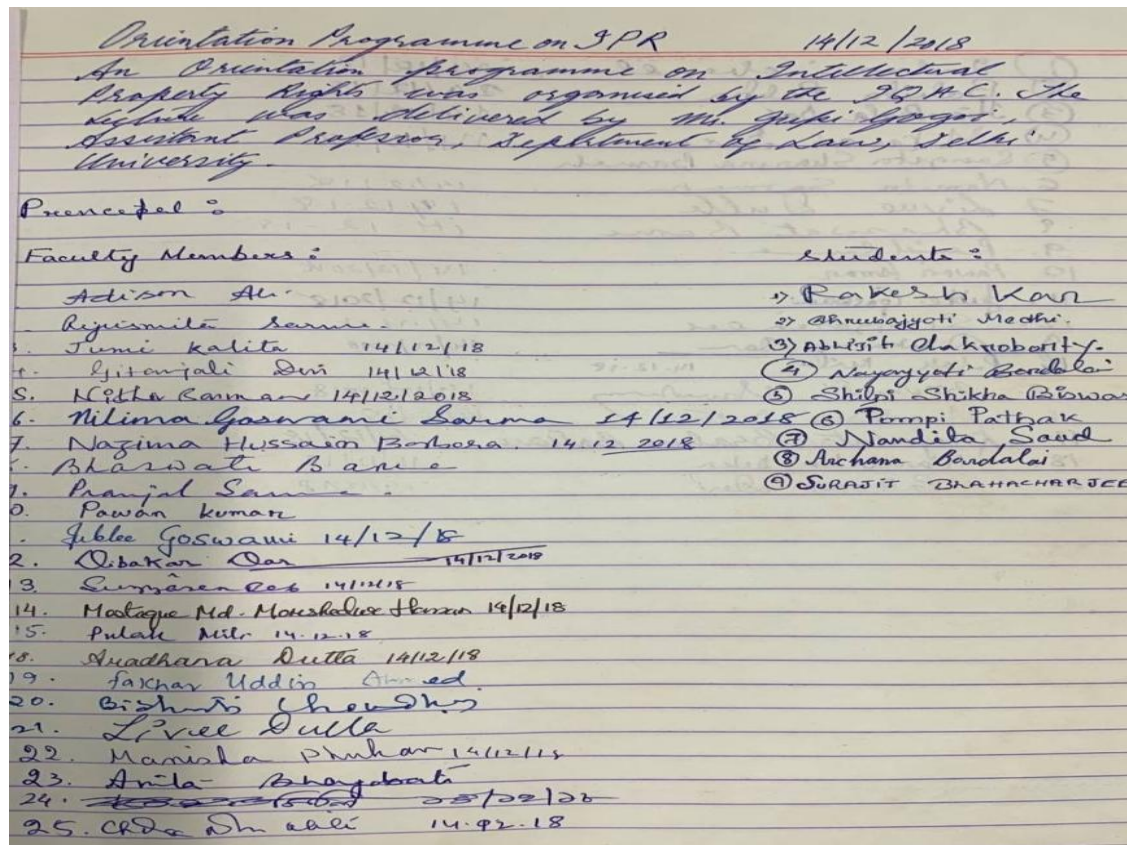 Orientation Programme on IPR 14/12/2018
An Orientation programme on Intellectual
Property Rights was organised by the IQAC. The
lecture was delivered by Mr. Gupi Gogoi,
Assistant Professor, Department of Law, Delhi
University.
Prencepel :
Faculty Members :
Adison Ali.
Rijusmita Sarma.
3. Jumi Kalita 14/12/18
4. Gitanjali Devi 14/12/18
5. Barman 14/12/2018
6. Nilima Goswami Sarma 14/12/2018
7. Nazima Hussain Borbora. 14.12.2018
Bhaswati
9. Pranjal
0. Pawan Kumar
Jublee Goswami 14/12/18
2. Dibakar Das 14/12/2018
13. 14/12/18
14. Mostaque Md. Hassan 14/12/18
15. Pulak 14.12.18
18. Aradhana Dutta 14/12/18
19. Fakhar Uddin Ahmed.
20. Choudhury
21. Livee Dutta
22. Manisha Phukan 14/12/18
23. Anita
24.
25. 14.12.18
Students :
1) Rakesh Kar
2) Dhrubajyoti Medhi.
3) Abhijit Chakroborty.
4 Bordalai
5 Shilpi Shikha Biswas
6 Pompi Pathak
7 Nandita Saud
8 Archana Bordalai
9 SURAJIT BHAHACHARJEE